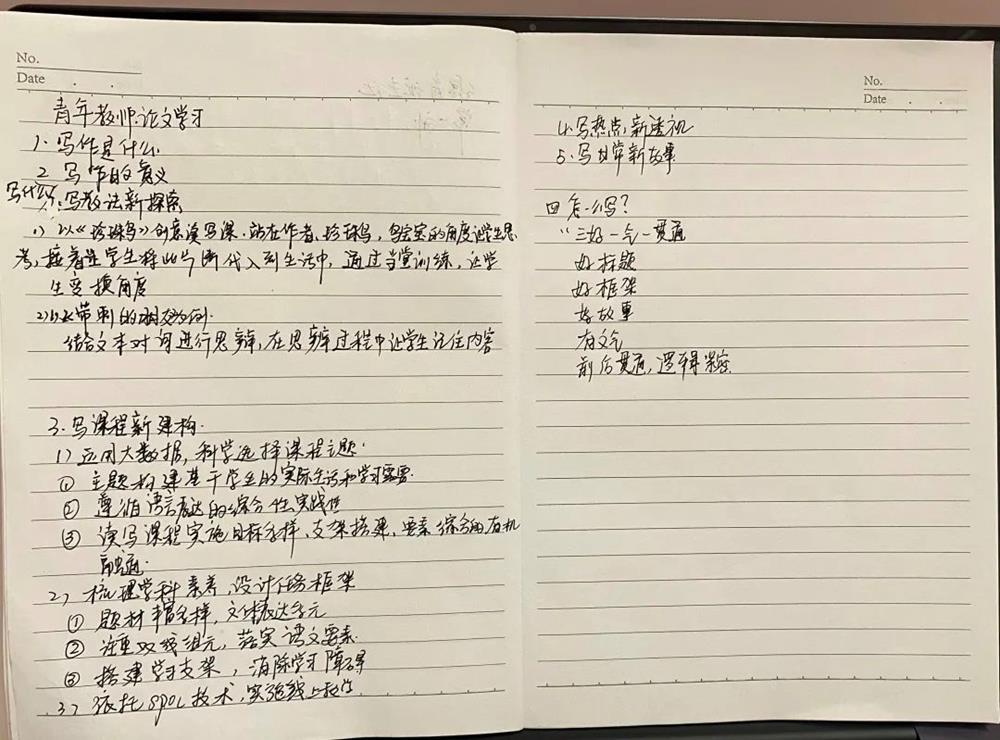 No.
Date
青年教师论文学习
1. 写作是什么
2. 写作的意义
写什么?
1. 写教法新探索
1) 以《珍珠鸟》创意读写课.站在作者、珍珠鸟、的角度让学生思
考,接着让学生将此片断代入到生活中,通过当堂训练,让学
生变换角度
2) 以带刺的
结合文本对词进行思辨,在思辨过程中让学生记住内容
3. 写课程新建构.
1) 运用大数据,科学选择课程主题.
① 主题构建基于学生的实际生活和学习需要.
② 遵循语言表达的综合性实践性
③ 读写课程实施目标多样,支架搭建,要素综合的有机
融通.
2) 梳理学科素养,设计任务框架
① 题材丰富多样,文体表达多元
② 注重双线组元,落实语文要素.
③ 搭建学习支架,消除学习障碍
3) 依托spoc技术,实施线上教学
No.
Date
4. 写热点新透视
5. 写日常新故事
四 怎么写?
"三好一气一贯通
好标题
好框架
好故事
有文气
前后贯通,逻辑紧密